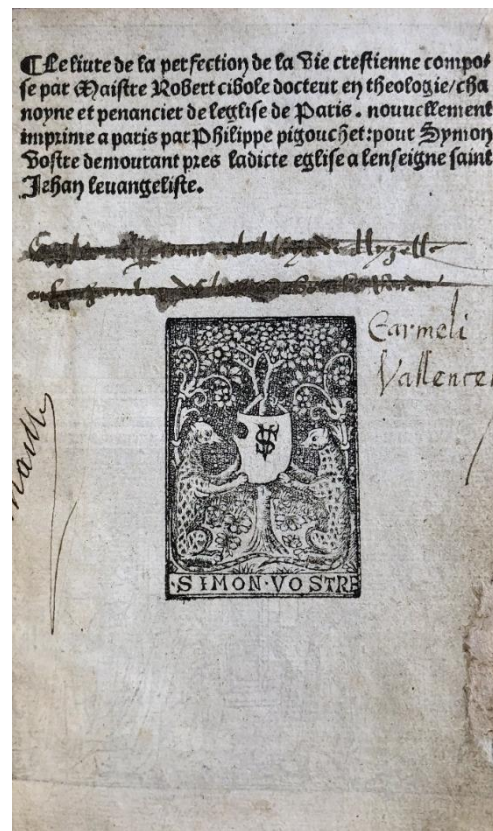 Le liure de la perfection de la Vie crestienne compo-
se par Maistre Robert cibole docteur en theologie/cha
noyne et penancier de leglise de Paris. nouuellement
imprime a paris par Philippe pigouchet: pour Symon
Vostre demourant pres ladicte eglise a lenseigne saint
Jehan leuangeliste.
Carmeli
Vallencen
SIMON·VOSTRE